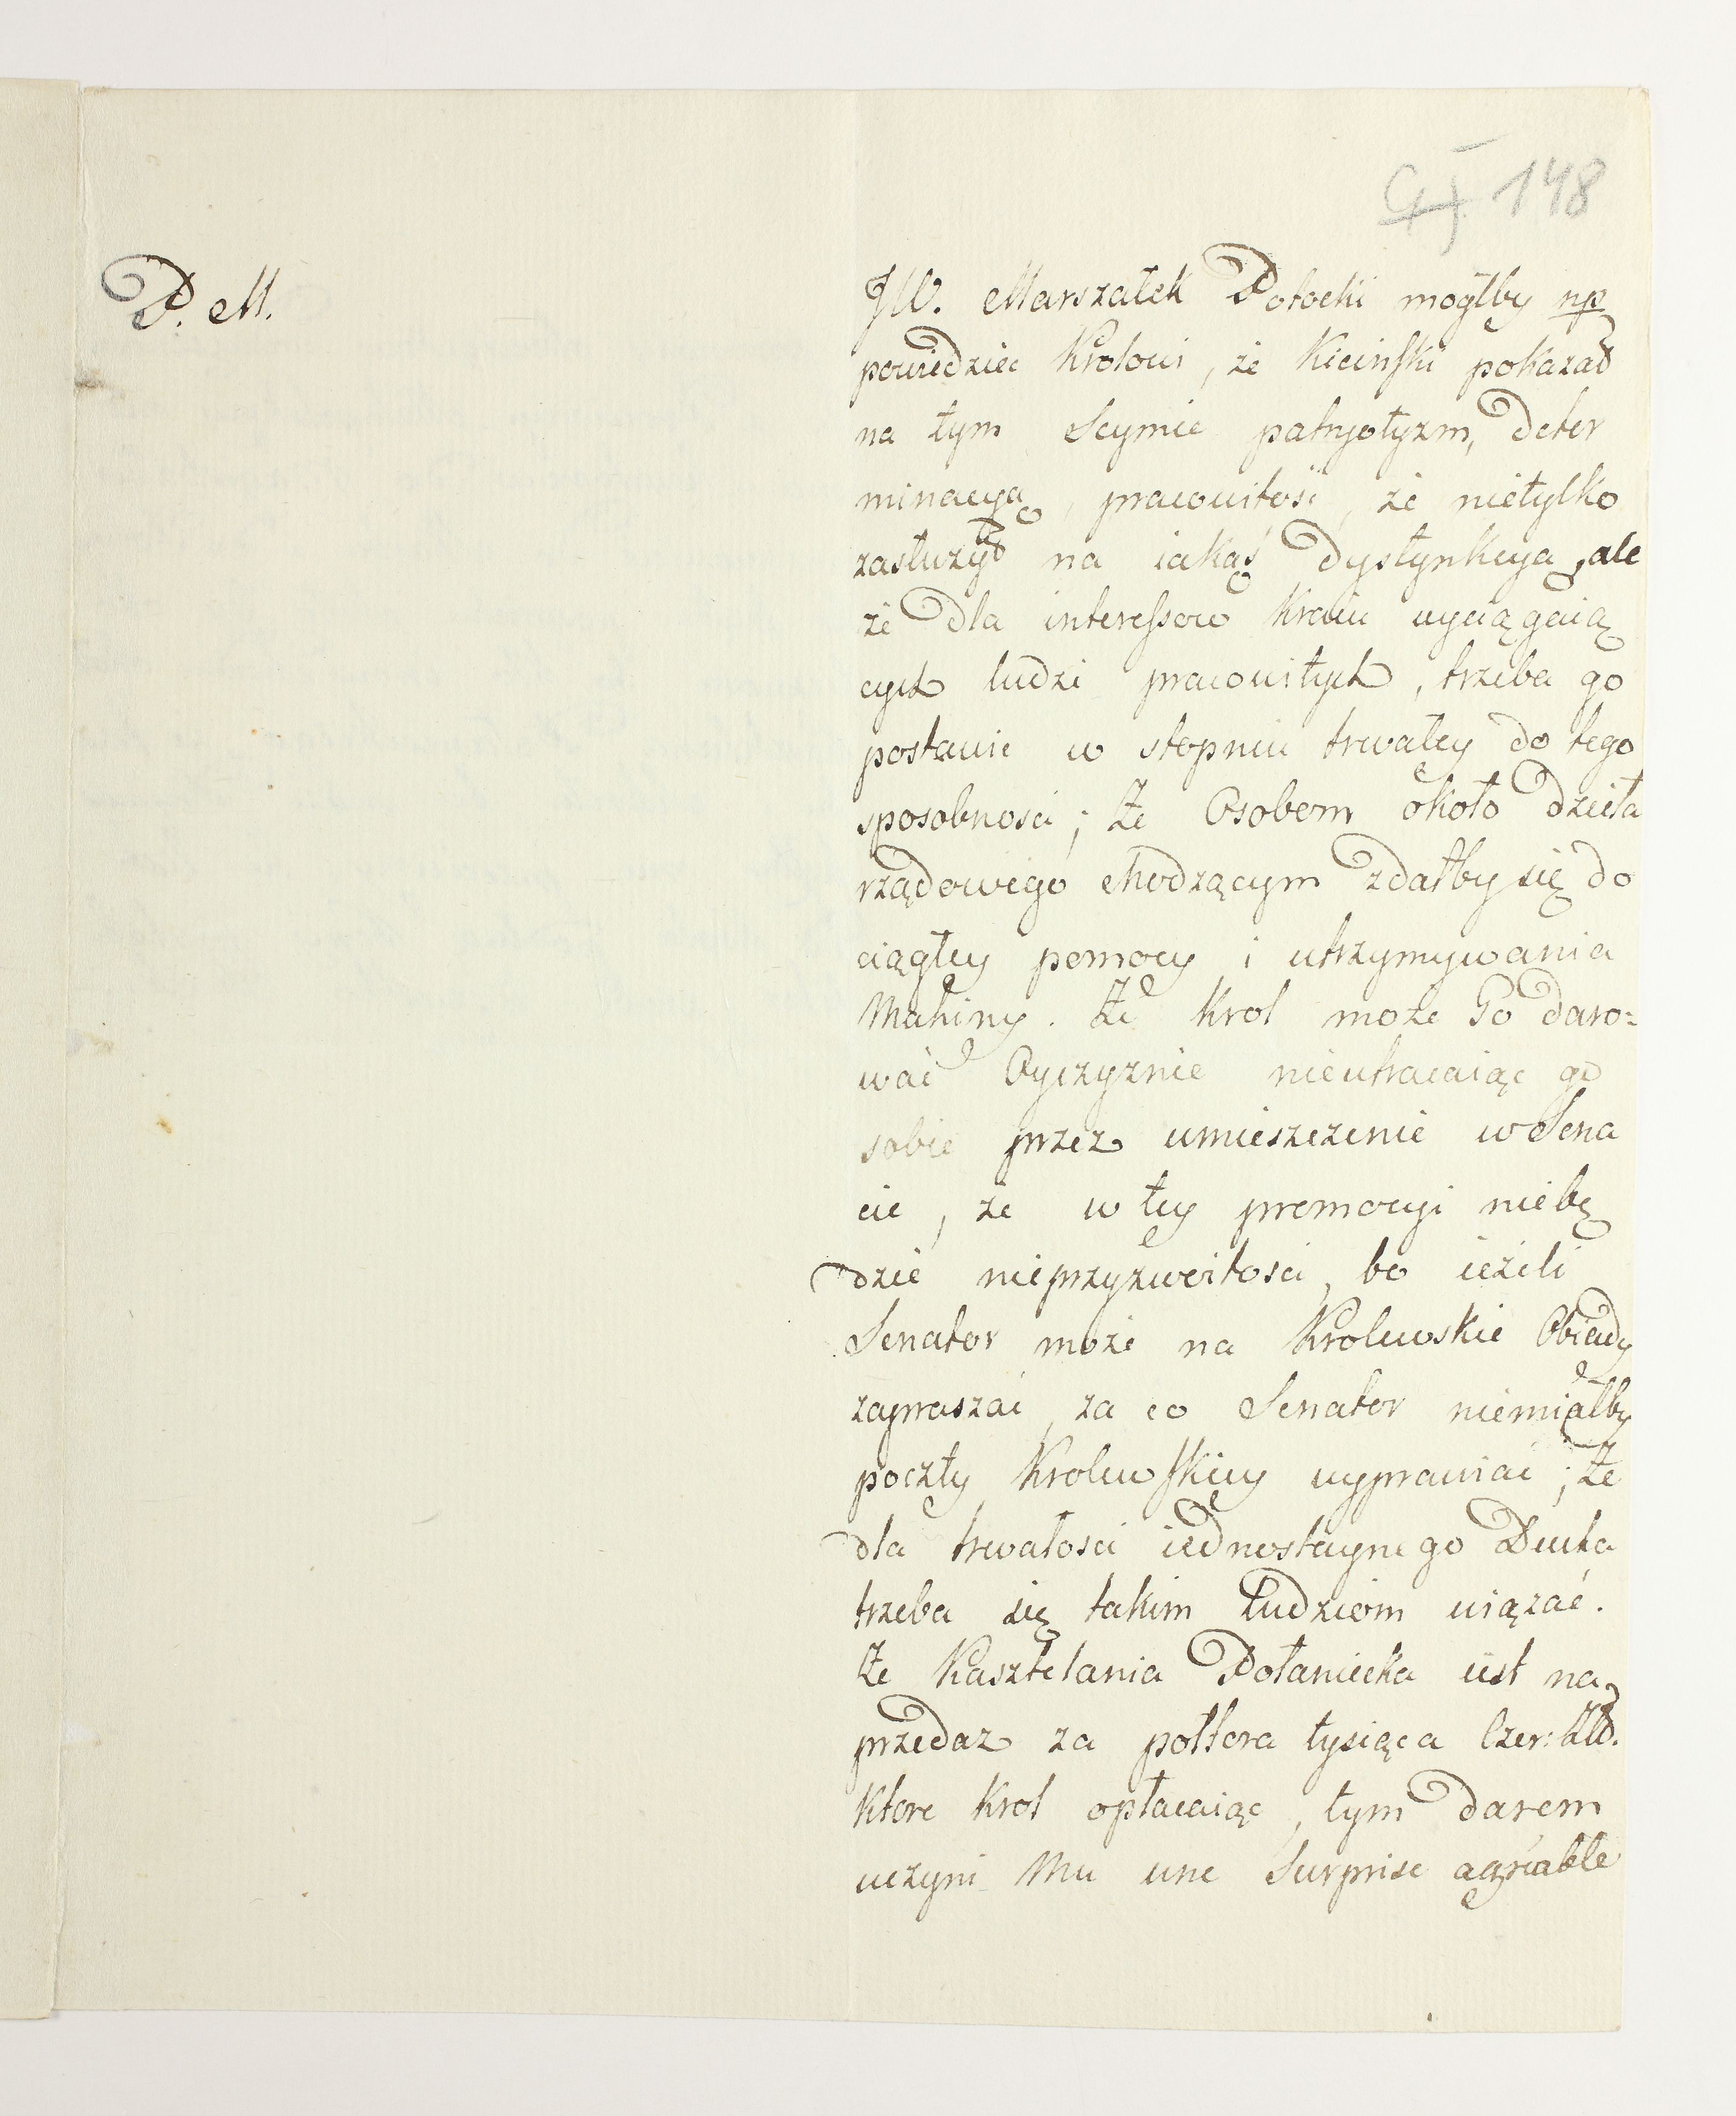 148
P. M.
JW. Marszałek Potocki mogłby np
powiedziec Krolowi, że Kicinski pokazał
na tym Seymie patryotyzm, deter
minacyą, pracowitosć, że nietylko
zasłużył na iakąś dystynkcyą, ale
że dla interessow Kraiu wyciągaią
cych ludzi pracowitych, trzeba go
postawic w stopniu trwałey do tego
sposobnosci; że Osobom około dzieła
rządowego chodzącym zdałby się do
ciągłey pomocy i utrzymywania
Mahiny. Że Krol może Go daro=
wać Oyczyznie nieutracaiąc go
sobie przez umieszczenie w Sena
cie, że w tey promocyi niebę
dzie nieprzyzwoitosci, bo ieżeli
Senator może na Krolewskie Obiady
zapraszać, za co Senator niemiałby
poczty Krolewskiey wyprawiać; że
dla trwałosci iednostaynego Ducha
trzeba się takim Ludziom wiązać.
Że Kasztelania Połaniecka iest na
przedaż za połtora tysiąca Czer: Zł.
ktore Krol opłacaiąc, tym darem
uczyni Mu une Surprise agréable